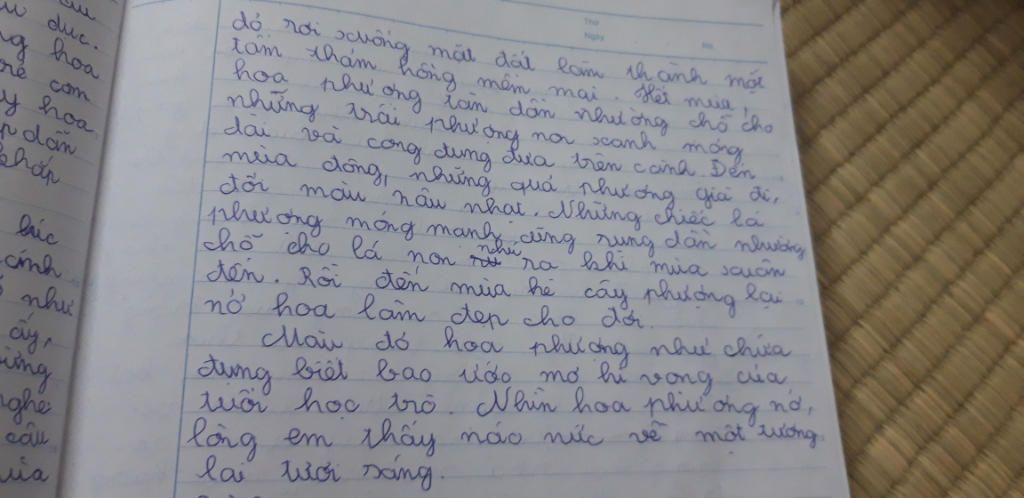 u duc.
ng hoa
rẻ con
y hoa
p dẫn
khắp
lúc
cính
như
ấy,
ường
nghe
câu
ủa
Thứ
Ngày
No.
đỏ rơi xuống mặt đất làm thành một
tấm thảm hồng mềm mại. Hết mùa,
hoa phượng tàn dần nhường chỗ cho
những trái phượng non xanh mỏng
dài và cong đung đưa trên cành. Đến
mùa đông, những quả phượng già đi,
đổi màu nâu nhạt. Những chiếc lá
phượng mỏng manh cũng rụng dần nhường
chỗ cho lá non nhú ra khi mùa xuân
đến. Rồi đến mùa hè cây phượng lại
nở hoa làm đẹp cho đời.
Màu đỏ hoa phượng như chứa
đựng biết bao ước mơ hi vọng của
tuổi học trò. Nhìn hoa phượng nở,
lòng em thấy náo nức về một tương
lai tươi sáng.